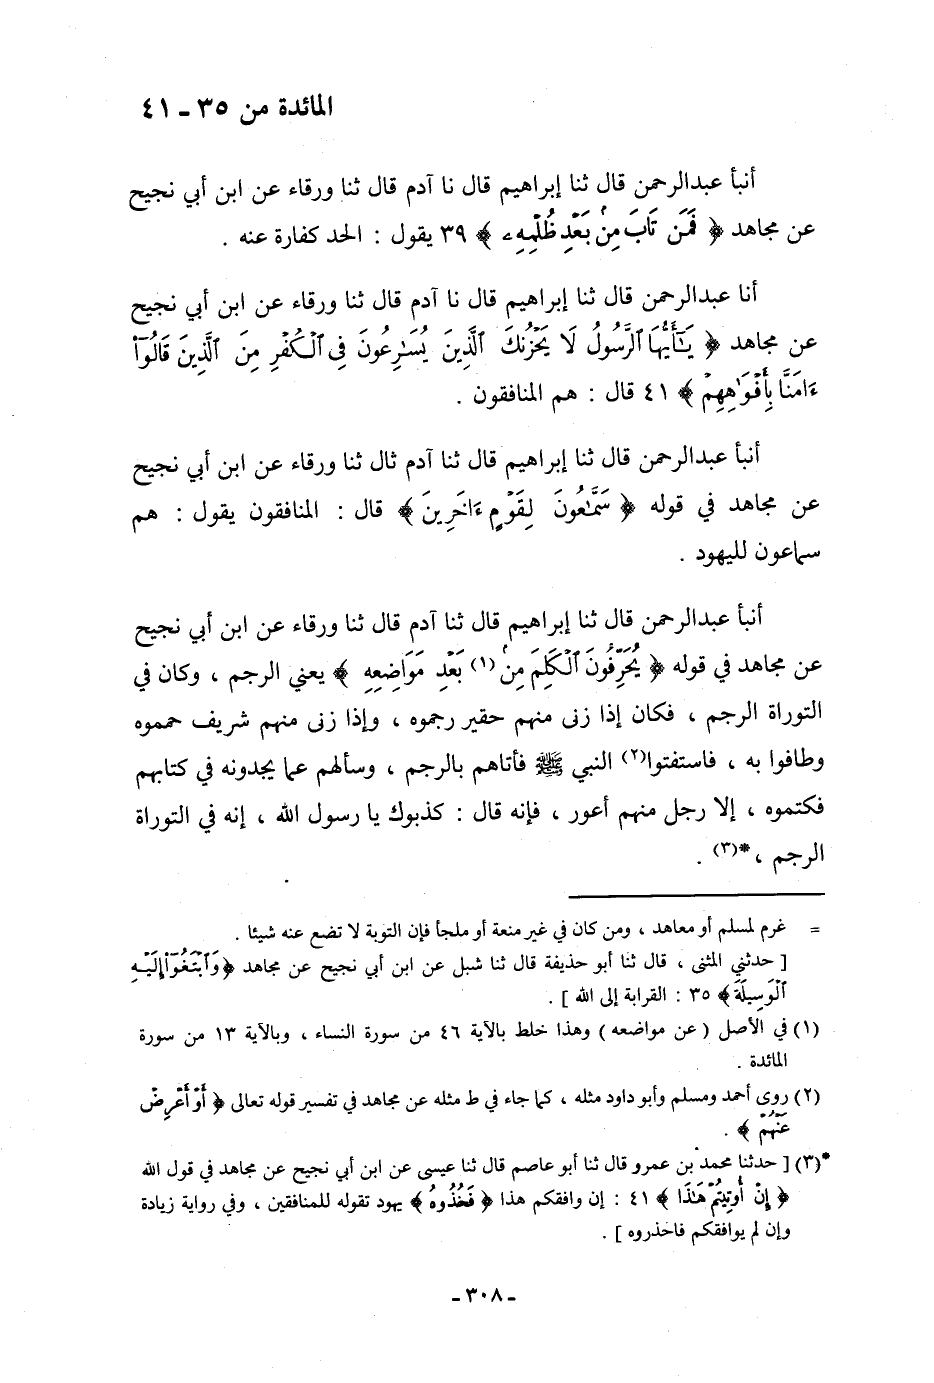 المائدة من ٣٥ ـ ٤١
أنبأ عبدالرحمن قال ثنا إبراهيم قال نا آدم قال ثنا ورقاء عن ابن أبي نجيح
عن مجاهد ﴿ فَمَن تَابَ مِنۢ بَعْدِ ظُلْمِهِۦ ﴾ ٣٩ يقول : الحد كفارة عنه .
أنا عبدالرحمن قال ثنا إبراهيم قال نا آدم قال ثنا ورقاء عن ابن أبي نجيح
عن مجاهد ﴿ يَـٰٓأَيُّهَا ٱلرَّسُولُ لَا يَحْزُنكَ ٱلَّذِينَ يُسَـٰرِعُونَ فِى ٱلْكُفْرِ مِنَ ٱلَّذِينَ قَالُوٓا۟
ءَامَنَّا بِأَفْوَٰهِهِمْ ﴾ ٤١ قال : هم المنافقون .
أنبأ عبدالرحمن قال ثنا إبراهيم قال ثنا آدم ثال ثنا ورقاء عن ابن أبي نجيح
عن مجاهد في قوله ﴿ سَمَّـٰعُونَ لِقَوْمٍ ءَاخَرِينَ ﴾ قال : المنافقون يقول : هم
سماعون لليهود .
أنبأ عبدالرحمن قال ثنا إبراهيم قال ثنا آدم قال ثنا ورقاء عن ابن أبي نجيح
عن مجاهد في قوله ﴿ يُحَرِّفُونَ ٱلْكَلِمَ مِنۢ (١) بَعْدِ مَوَاضِعِهِ ﴾ يعني الرجم ، وكان في
التوراة الرجم ، فكان إذا زنى منهم حقير رجموه ، وإذا زنى منهم شريف حمموه
وطافوا به ، فاستفتوا(٢) النبي ﷺ فأتاهم بالرجم ، وسألهم عما يجدونه في كتابهم
فكتموه ، إلا رجل منهم أعور ، فإنه قال : كذبوك يا رسول الله ، إنه في التوراة
الرجم ،*(٣) .
= غرم لمسلم أو معاهد ، ومن كان في غير منعة أو ملجأ فإن التوبة لا تضع عنه شيئا .
[ حدثني المثنى ، قال ثنا أبو حذيفة قال ثنا شبل عن ابن أبي نجيح عن مجاهد ﴿وَٱبْتَغُوٓا۟ إِلَيْهِ
ٱلْوَسِيلَةَ﴾ ٣٥ : القرابة إلى الله ] .
(١) في الأصل ( عن مواضعه ) وهذا خلط بالآية ٤٦ من سورة النساء ، وبالآية ١٣ من سورة
المائدة .
(٢) روى أحمد ومسلم وأبو داود مثله ، كما جاء في ط مثله عن مجاهد في تفسير قوله تعالى ﴿ أَوْ أَعْرِضْ
عَنْهُمْ ﴾ .
*(٣) [ حدثنا محمد بن عمرو قال ثنا أبو عاصم قال ثنا عيسى عن ابن أبي نجيح عن مجاهد في قول الله
﴿ إِنْ أُوتِيتُمْ هَـٰذَا ﴾ ٤١ : إن وافقكم هذا ﴿ فَخُذُوهُ ﴾ يهود تقوله للمنافقين ، وفي رواية زيادة
وإن لم يوافقكم فاحذروه ] .
ـ ٣٠٨ ـ